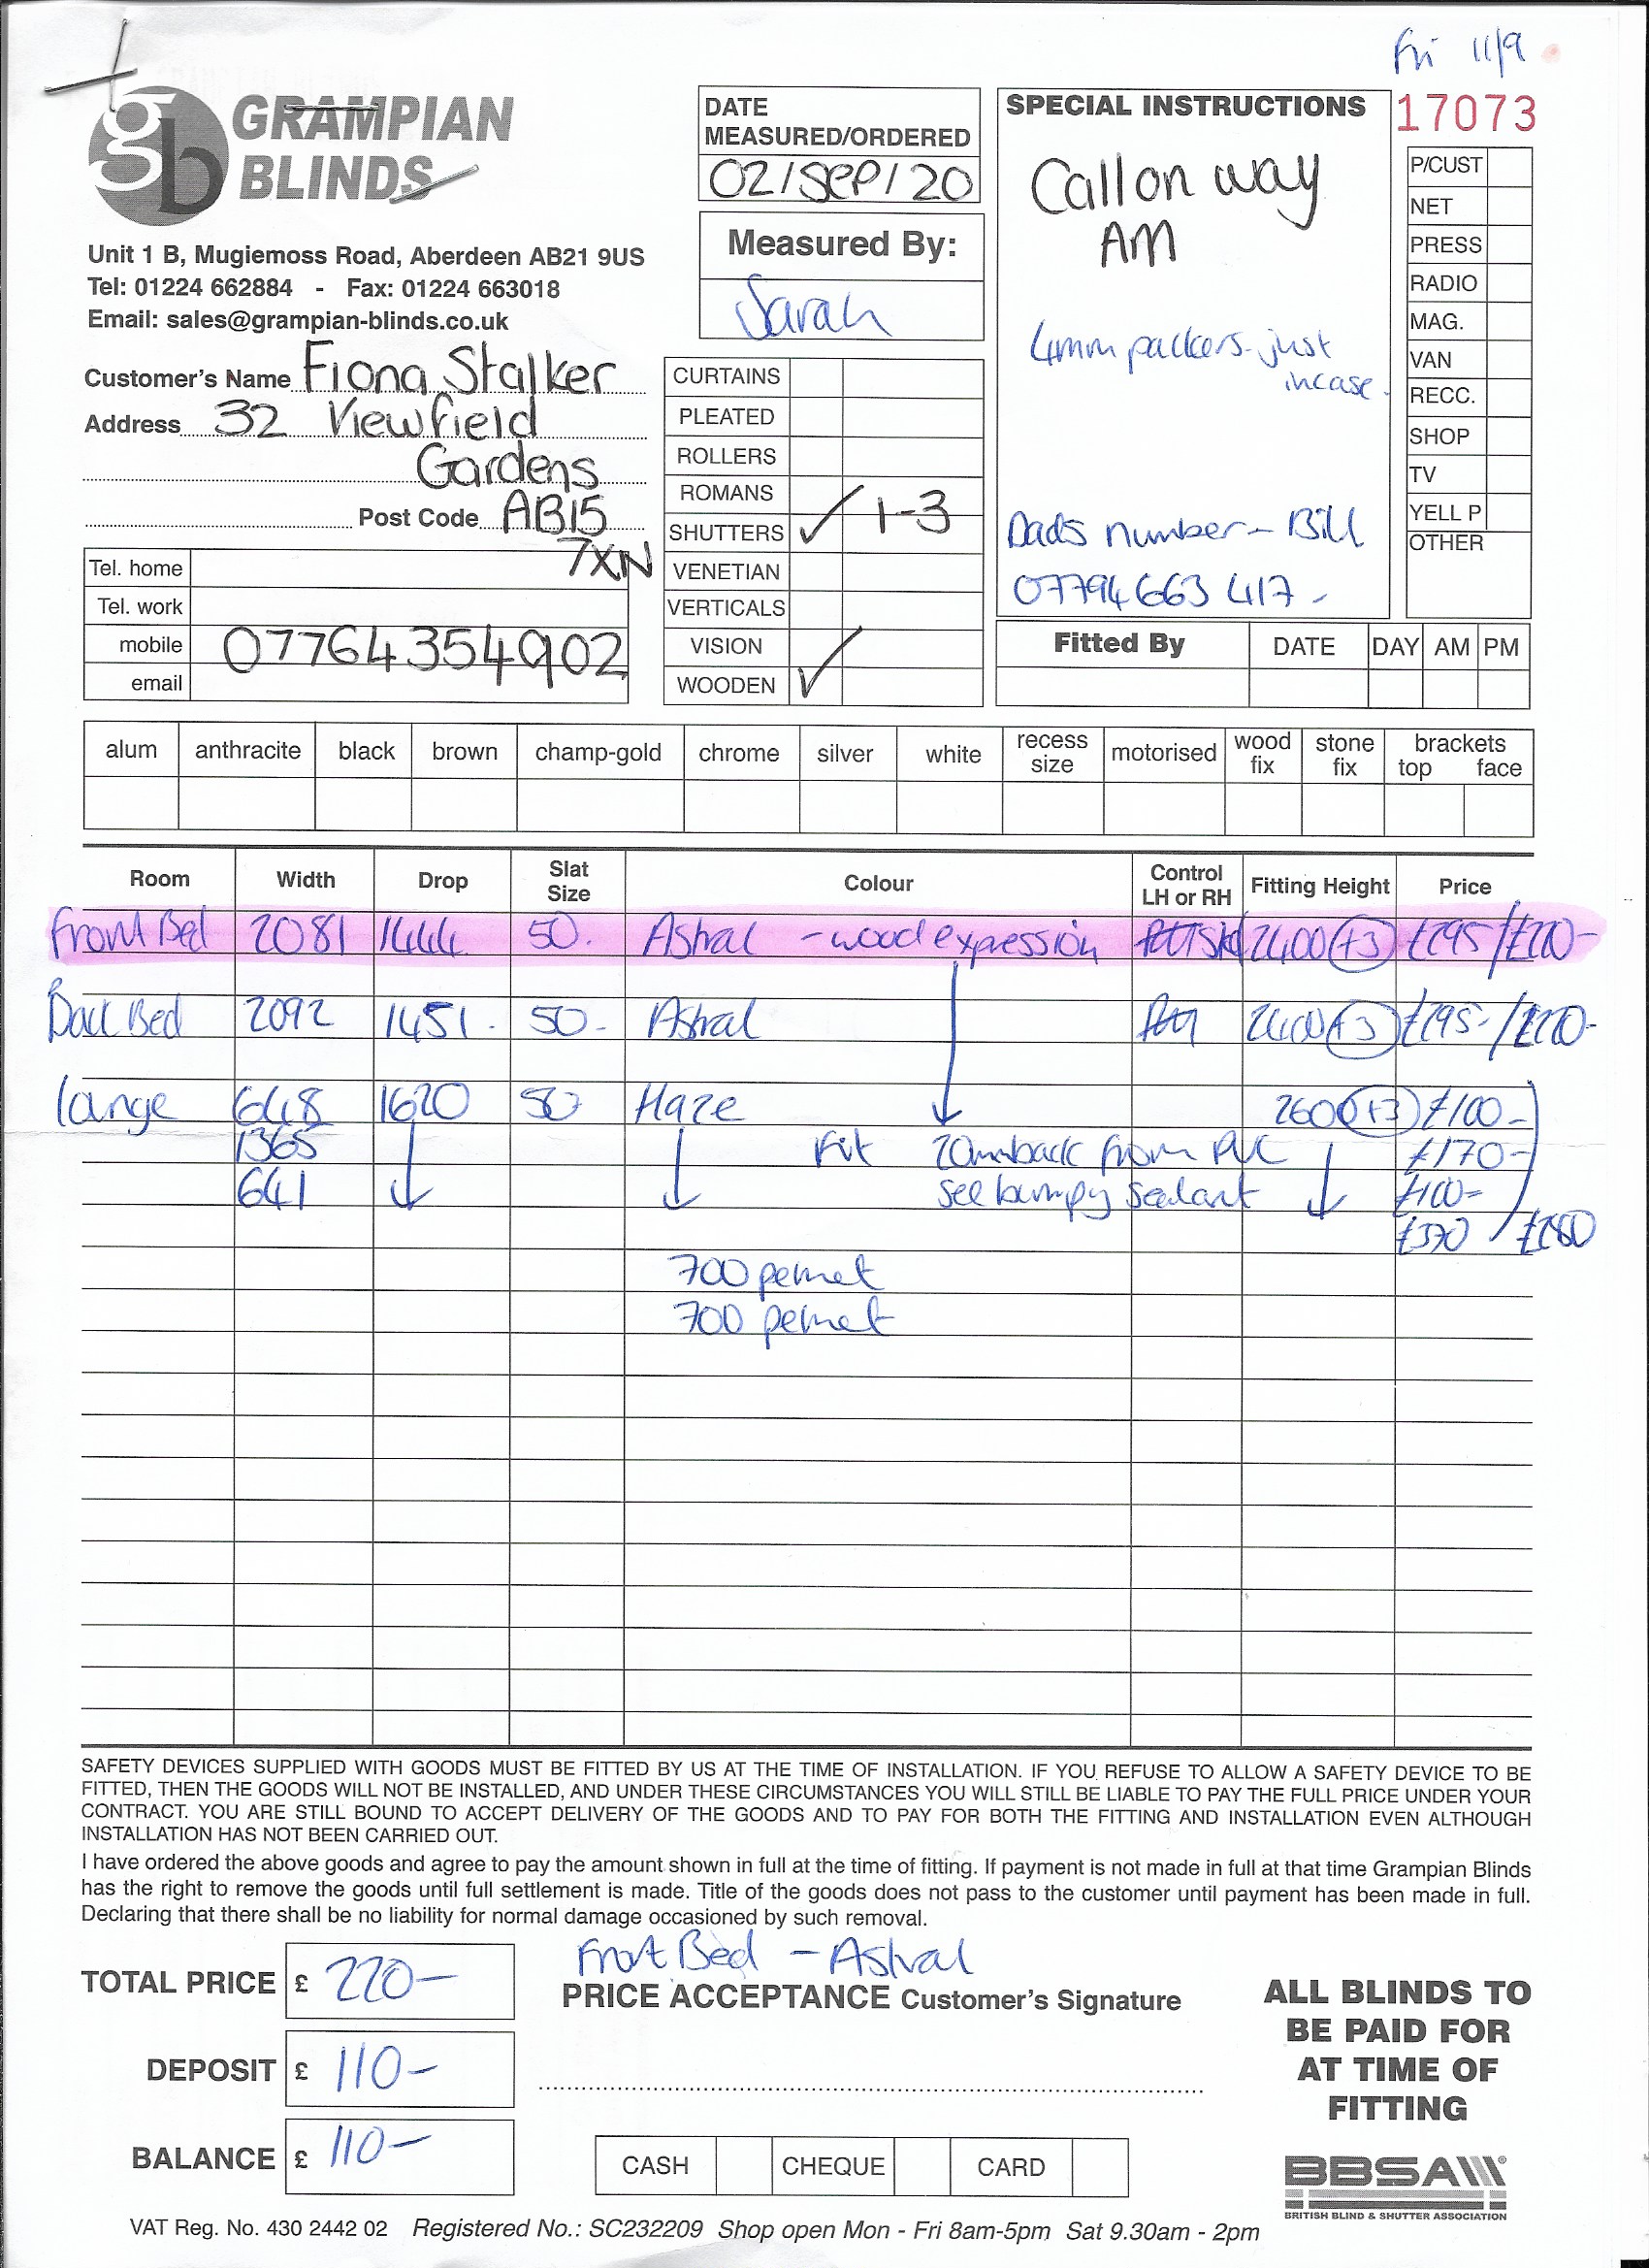 Fri 11/9
GRAMPIAN
BLINDS
Unit 1 B, Mugiemoss Road, Aberdeen AB21 9US
Tel: 01224 662884 - Fax: 01224 663018
Email: sales@grampian-blinds.co.uk
Customer's Name Fiona Stalker
Address 32 Viewfield
Gardens
Post Code AB15
7XN
Tel. home
Tel. work
mobile 07764354902
email
DATE
MEASURED/ORDERED
02/SEP/20
Measured By:
Sarah
CURTAINS
PLEATED
ROLLERS
ROMANS
SHUTTERS ✓ 1-3
VENETIAN
VERTICALS
VISION
WOODEN ✓
SPECIAL INSTRUCTIONS
Call on way
AM
4mm packers just
incase.
Dads number - Bill
07794 663 417 -
17073
P/CUST
NET
PRESS
RADIO
MAG.
VAN
RECC.
SHOP
TV
YELL P
OTHER
Fitted By DATE DAY AM PM
alum anthracite black brown champ-gold chrome silver white recess size motorised wood fix stone fix brackets top face
Room Width Drop Slat Size Colour Control LH or RH Fitting Height Price
Front Bed 2081 1444 50. Astral - wood expression 2400 (+3) £295/£220-
Back Bed 2092 1451. 50- Astral 2400 (+3) £295-/£220-
lounge 648 1620 50 Haze 2600 (+3) £100-
1365 Fit 20mm back from PVC £170-
641 see bumpy sealant £100-
£370 / £280
700 pelmet
700 pelmet
SAFETY DEVICES SUPPLIED WITH GOODS MUST BE FITTED BY US AT THE TIME OF INSTALLATION. IF YOU REFUSE TO ALLOW A SAFETY DEVICE TO BE
FITTED, THEN THE GOODS WILL NOT BE INSTALLED, AND UNDER THESE CIRCUMSTANCES YOU WILL STILL BE LIABLE TO PAY THE FULL PRICE UNDER YOUR
CONTRACT. YOU ARE STILL BOUND TO ACCEPT DELIVERY OF THE GOODS AND TO PAY FOR BOTH THE FITTING AND INSTALLATION EVEN ALTHOUGH
INSTALLATION HAS NOT BEEN CARRIED OUT.
I have ordered the above goods and agree to pay the amount shown in full at the time of fitting. If payment is not made in full at that time Grampian Blinds
has the right to remove the goods until full settlement is made. Title of the goods does not pass to the customer until payment has been made in full.
Declaring that there shall be no liability for normal damage occasioned by such removal.
TOTAL PRICE £ 220-
DEPOSIT £ 110-
BALANCE £ 110-
Front Bed - Astral
PRICE ACCEPTANCE Customer's Signature
CASH CHEQUE CARD
ALL BLINDS TO
BE PAID FOR
AT TIME OF
FITTING
BBSA
BRITISH BLIND & SHUTTER ASSOCIATION
VAT Reg. No. 430 2442 02 Registered No.: SC232209 Shop open Mon - Fri 8am-5pm Sat 9.30am - 2pm